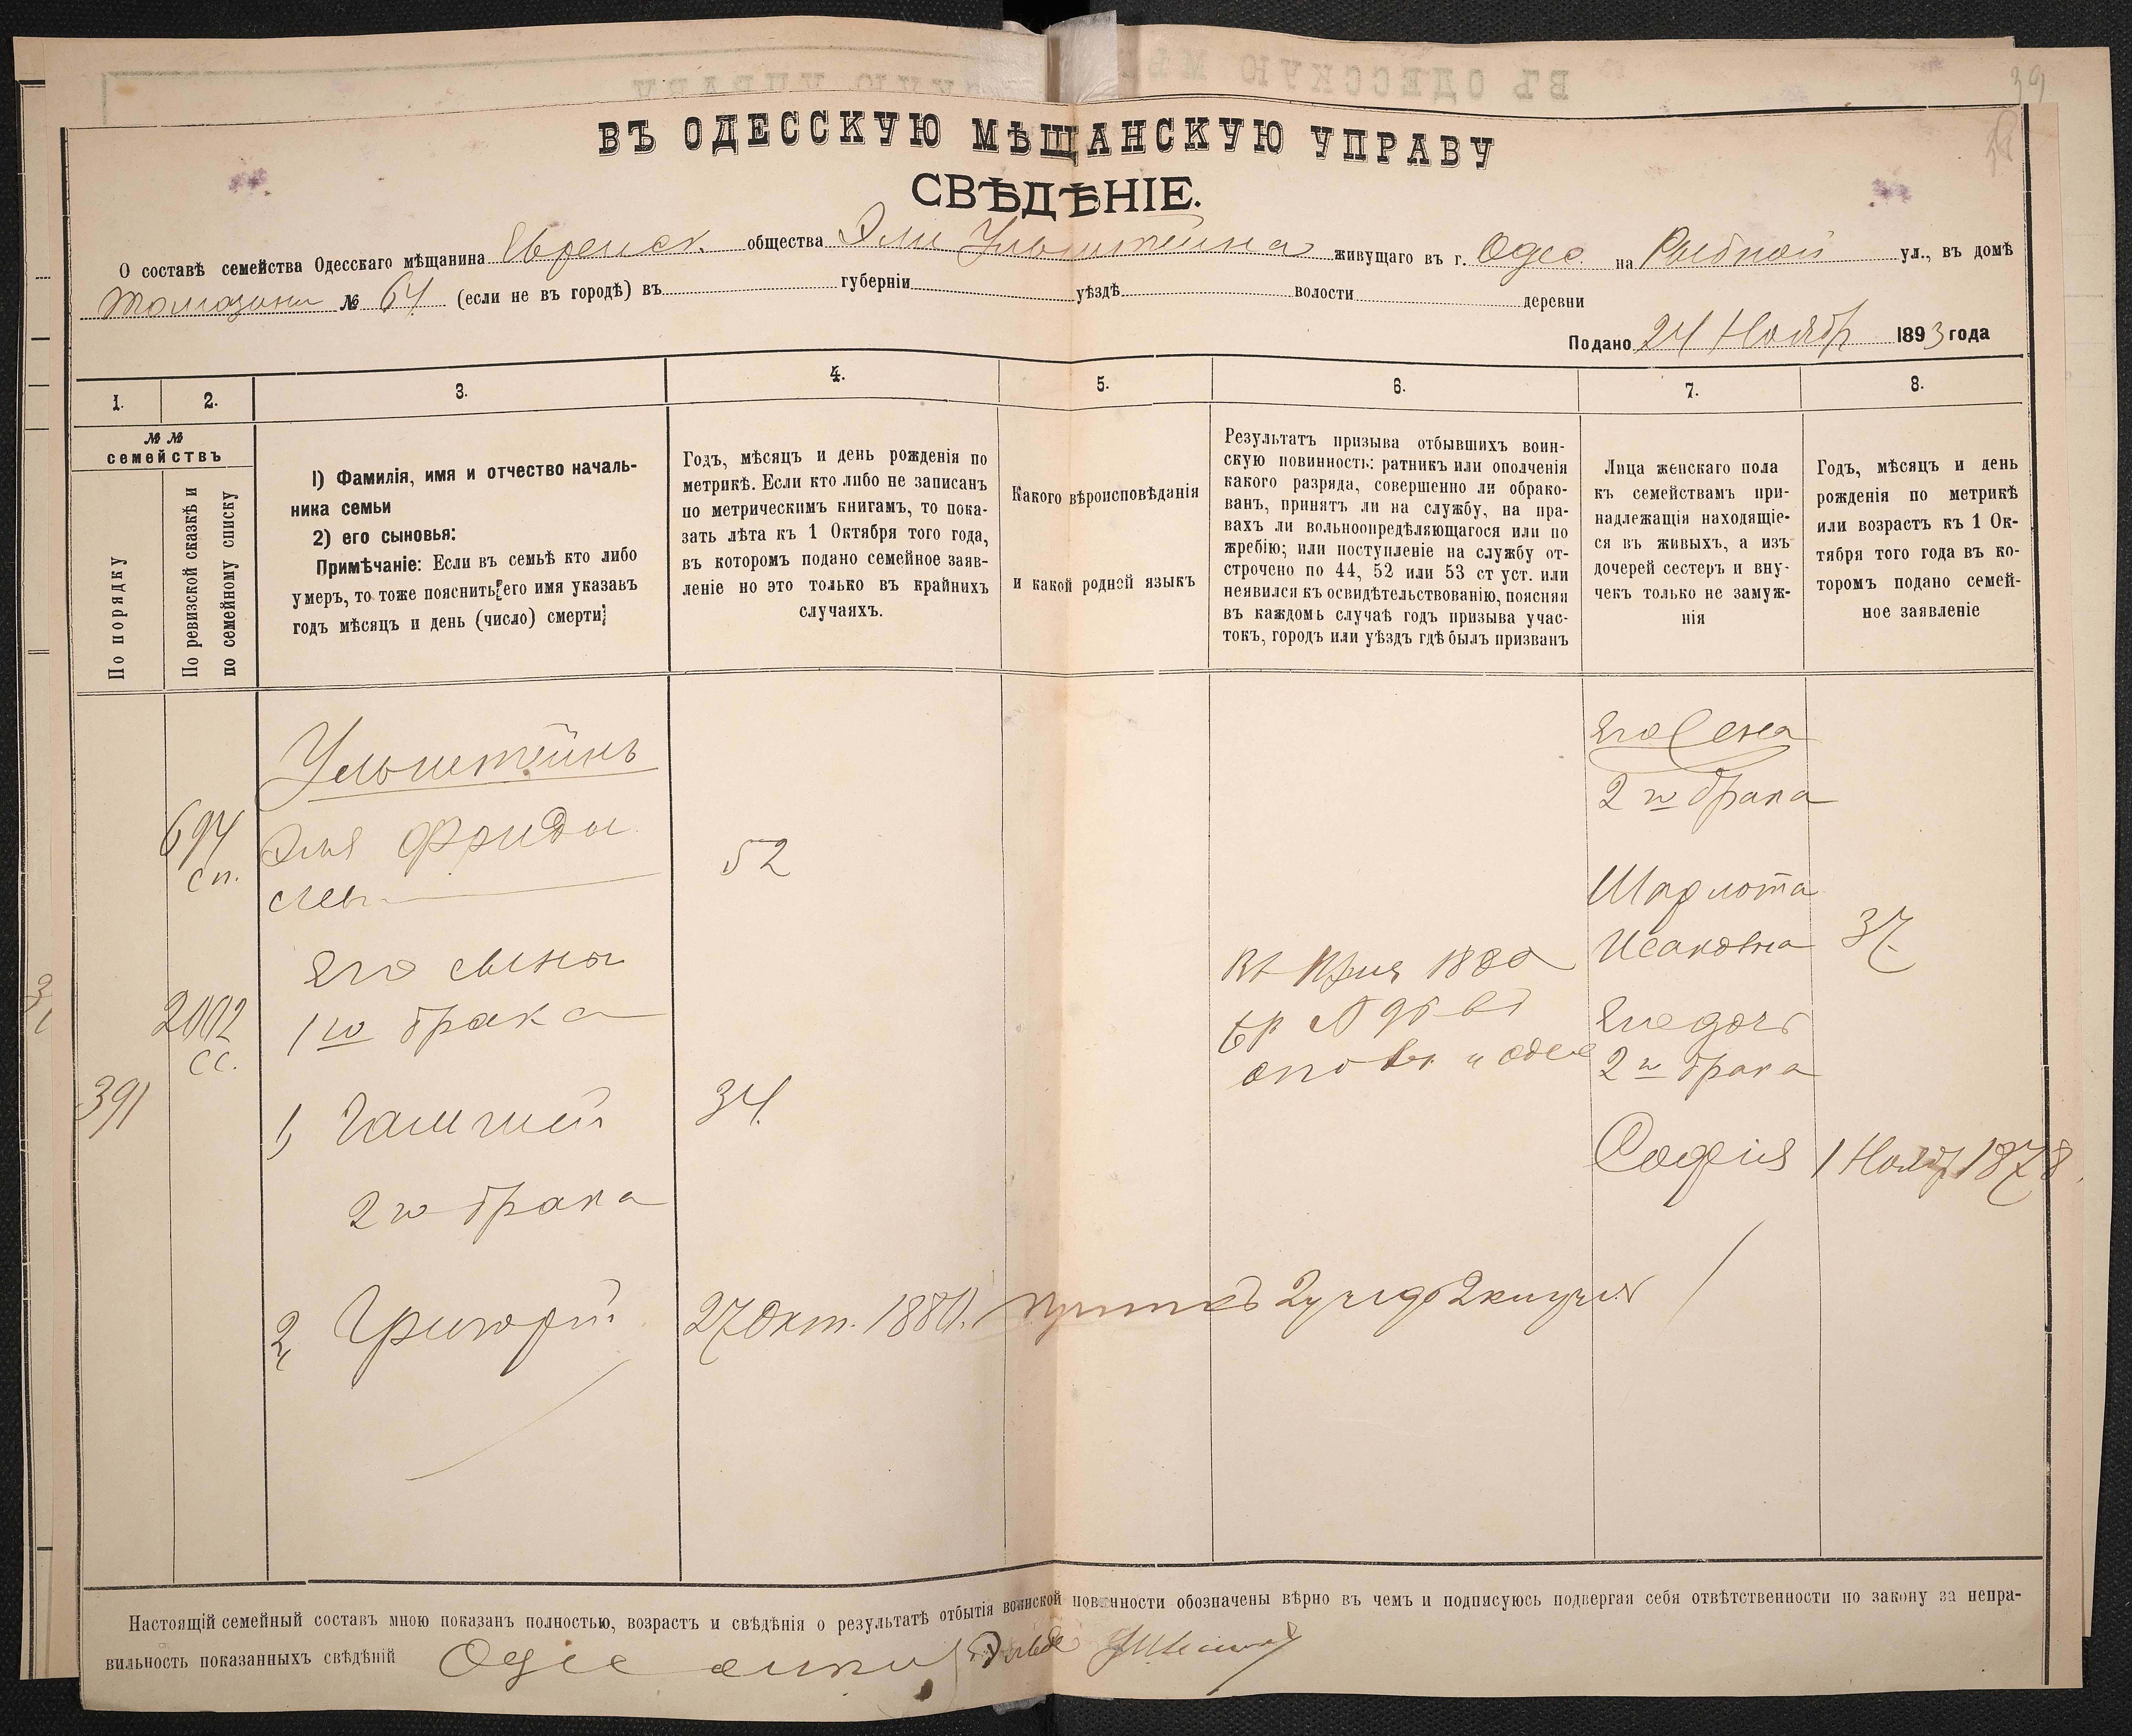 39
ВЪ ОДЕССКУЮ МѢЩАНСКУЮ УПРАВУ
СВѢДѢНІЕ.
О составѣ семейства Одесскаго мѣщанина Еврейск. общества Эли Ульштейна живущаго въ г. Одес. на Рыбной ул., въ домѣ
№ 64 (если не въ городѣ) въ губерніи уѣздѣ волости деревни
Подано 24 Ноябр 1893 года
1. 2. 3. 4. 5. 6. 7. 8.
№ №
семействъ
По порядку
По ревизской сказкѣ и
по семейному списку
1) Фамилія, имя и отчество началь-
ника семьи
2) его сыновья:
Примѣчаніе: Если въ семьѣ кто либо
умеръ, то тоже пояснить его имя указавъ
годъ мѣсяцъ и день (число) смерти;
Годъ, мѣсяцъ и день рожденія по
метрикѣ. Если кто либо не записанъ
по метрическимъ книгамъ, то пока-
зать лѣта къ 1 Октября того года,
въ которомъ подано семейное заяв-
леніе но это только въ крайнихъ
случаяхъ.
Какого вѣроисповѣданія
и какой родной языкъ
Результатъ призыва отбывшихъ воин-
скую повинность: ратникъ или ополченія
какого разряда, совершенно ли обрако-
ванъ, принятъ ли на службу, на пра-
вахъ ли вольноопредѣляющагося или по
жребію; или поступленіе на службу от-
строчено по 44, 52 или 53 ст уст. или
неявился къ освидѣтельствованію, поясняя
въ каждомъ случаѣ годъ призыва учас-
токъ, городъ или уѣздъ гдѣ былъ призванъ
Лица женскаго пола
къ семействамъ при-
надлежащія находящіе-
ся въ живыхъ, а изъ
дочерей сестеръ и вну-
чекъ только не замуж-
нія
Годъ, мѣсяцъ и день
рожденія по метрикѣ
или возрастъ къ 1 Ок-
тября того года въ ко-
торомъ подано семей-
ное заявленіе
Ульштейнъ
694
сп.
Эля Фриде
52
2002
сс.
его сыны
1го брака
391
1,
34.
2го брака
2, Григорій
27 Окт. 1880.
1880
его жена
2го брака
Шарлота
Исаковна
37
его дочь
2го брака
Софія
1 Ноябр 1878.
Настоящій семейный составъ мною показанъ полностью, возрастъ и свѣдѣнія о результатѣ отбытія воинской повинности обозначены вѣрно въ чемъ и подписуюсь подвергая себя отвѣтственности по закону за непра-
вильность показанныхъ свѣдѣній